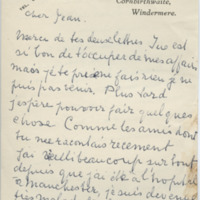 Cornbirthwaite,
Windermere.
Cher Jean.
Merci de tes deux lettres. Tu es
si bon de t'occuper de mes affaires
mais je te prie ne fais rien je ne
puis pas rien. Plus tard
j'espère pouvoir faire quelques
chose Comme les amis dont
tu me racontais récemment
J'ai vieilli beaucoup surtout
depuis que j'ai été à l'hôpital
à Manchester, je suis devenue